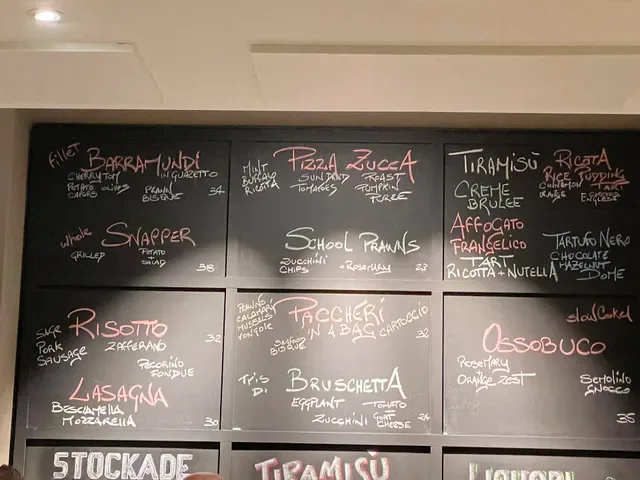 fillet BARRAMUNDI
CHERRY TOM IN GUAZETTO
POTATO OLIVES PRAWN
CAPERS BISQUE 34
whole SNAPPER
GRILLED POTATO
+ SALAD
38
MINT PIZZA ZUCCA
BUFFALO SUN DRIED ROAST
RICOTTA TOMATOES PUMPKIN
PUREE
SCHOOL PRAWNS
ZUCCHINI
CHIPS + ROSEMARY 23
TIRAMISÙ
CREME
BRULEE
AFFOGATO
FRANGELICO
TART
RICOTTA + NUTELLA
RICOTA
RICE PUDDING
CINNAMON
ORANGE
TARTUFO NERO
CHOCOLATE
HAZELNUT
DOME
SAGE RISOTTO 32
PORK ZAFFERANO
SAUSAGE PECORINO
FONDUE
LASAGNA
BESCIAMELLA
MOZZARELLA 30
PRAWNS
CALAMARI
MUSSELS
VONGOLE
PACCHERI
IN A BAG CARTOCCIO
SEAFOOD
BISQUE 32
TRIS
DI BRUSCHETTA
EGGPLANT TOMATO
ZUCCHINI GOAT
CHEESE 24
slow cooked
OSSOBUCO
ROSEMARY
ORANGE ZEST SEMOLINO
GNOCCO
35
STOCKADE
TIRAMISÙ
LIQUORI